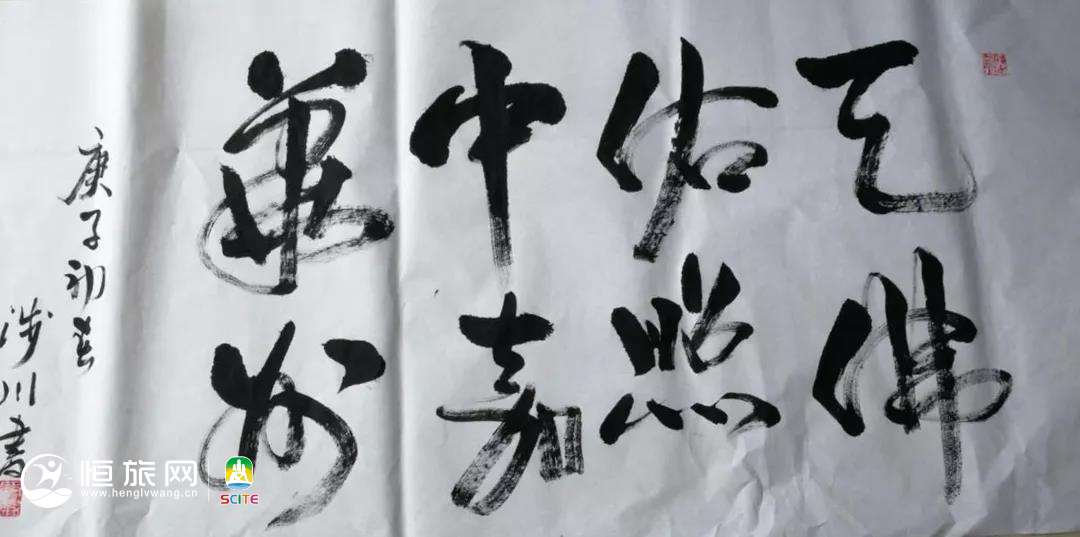 天佑中華
佛照嘉州
庚子初春
涉川書
恒旅网
www.henglvwang.cn
SCITE